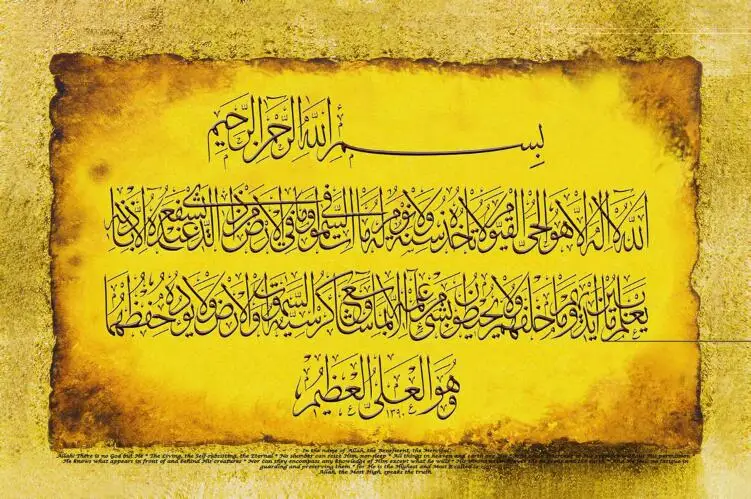 بِسم اللهِ الرَّحمنِ الرَّحيمِ
اللهُ لا إله إلا هو الحي القيوم لا تأخذه سنة ولا نوم له ما في السموات وما في الأرض من ذا الذي يشفع عنده إلا بإذنه
يعلم ما بين أيديهم وما خلفهم ولا يحيطون بشيء من علمه إلا بما شاء وسع كرسيه السموات والأرض ولا يؤده حفظهما
وهو العلي العظيم ١٣٩٠
In the name of Allah, the Beneficent, the Merciful
Allah! There is no God but He * The Living, the Self-subsisting, the Eternal * No slumber can seize Him, nor sleep * All things in heaven and earth are His * permission
He knows what appears in front of and behind His creatures * Nor can they encompass any knowledge of Him except what he wills * no fatigue in
guarding and preserving them * for He is the Highest and Most Exalted
Allah, the Most High, speaks the truth